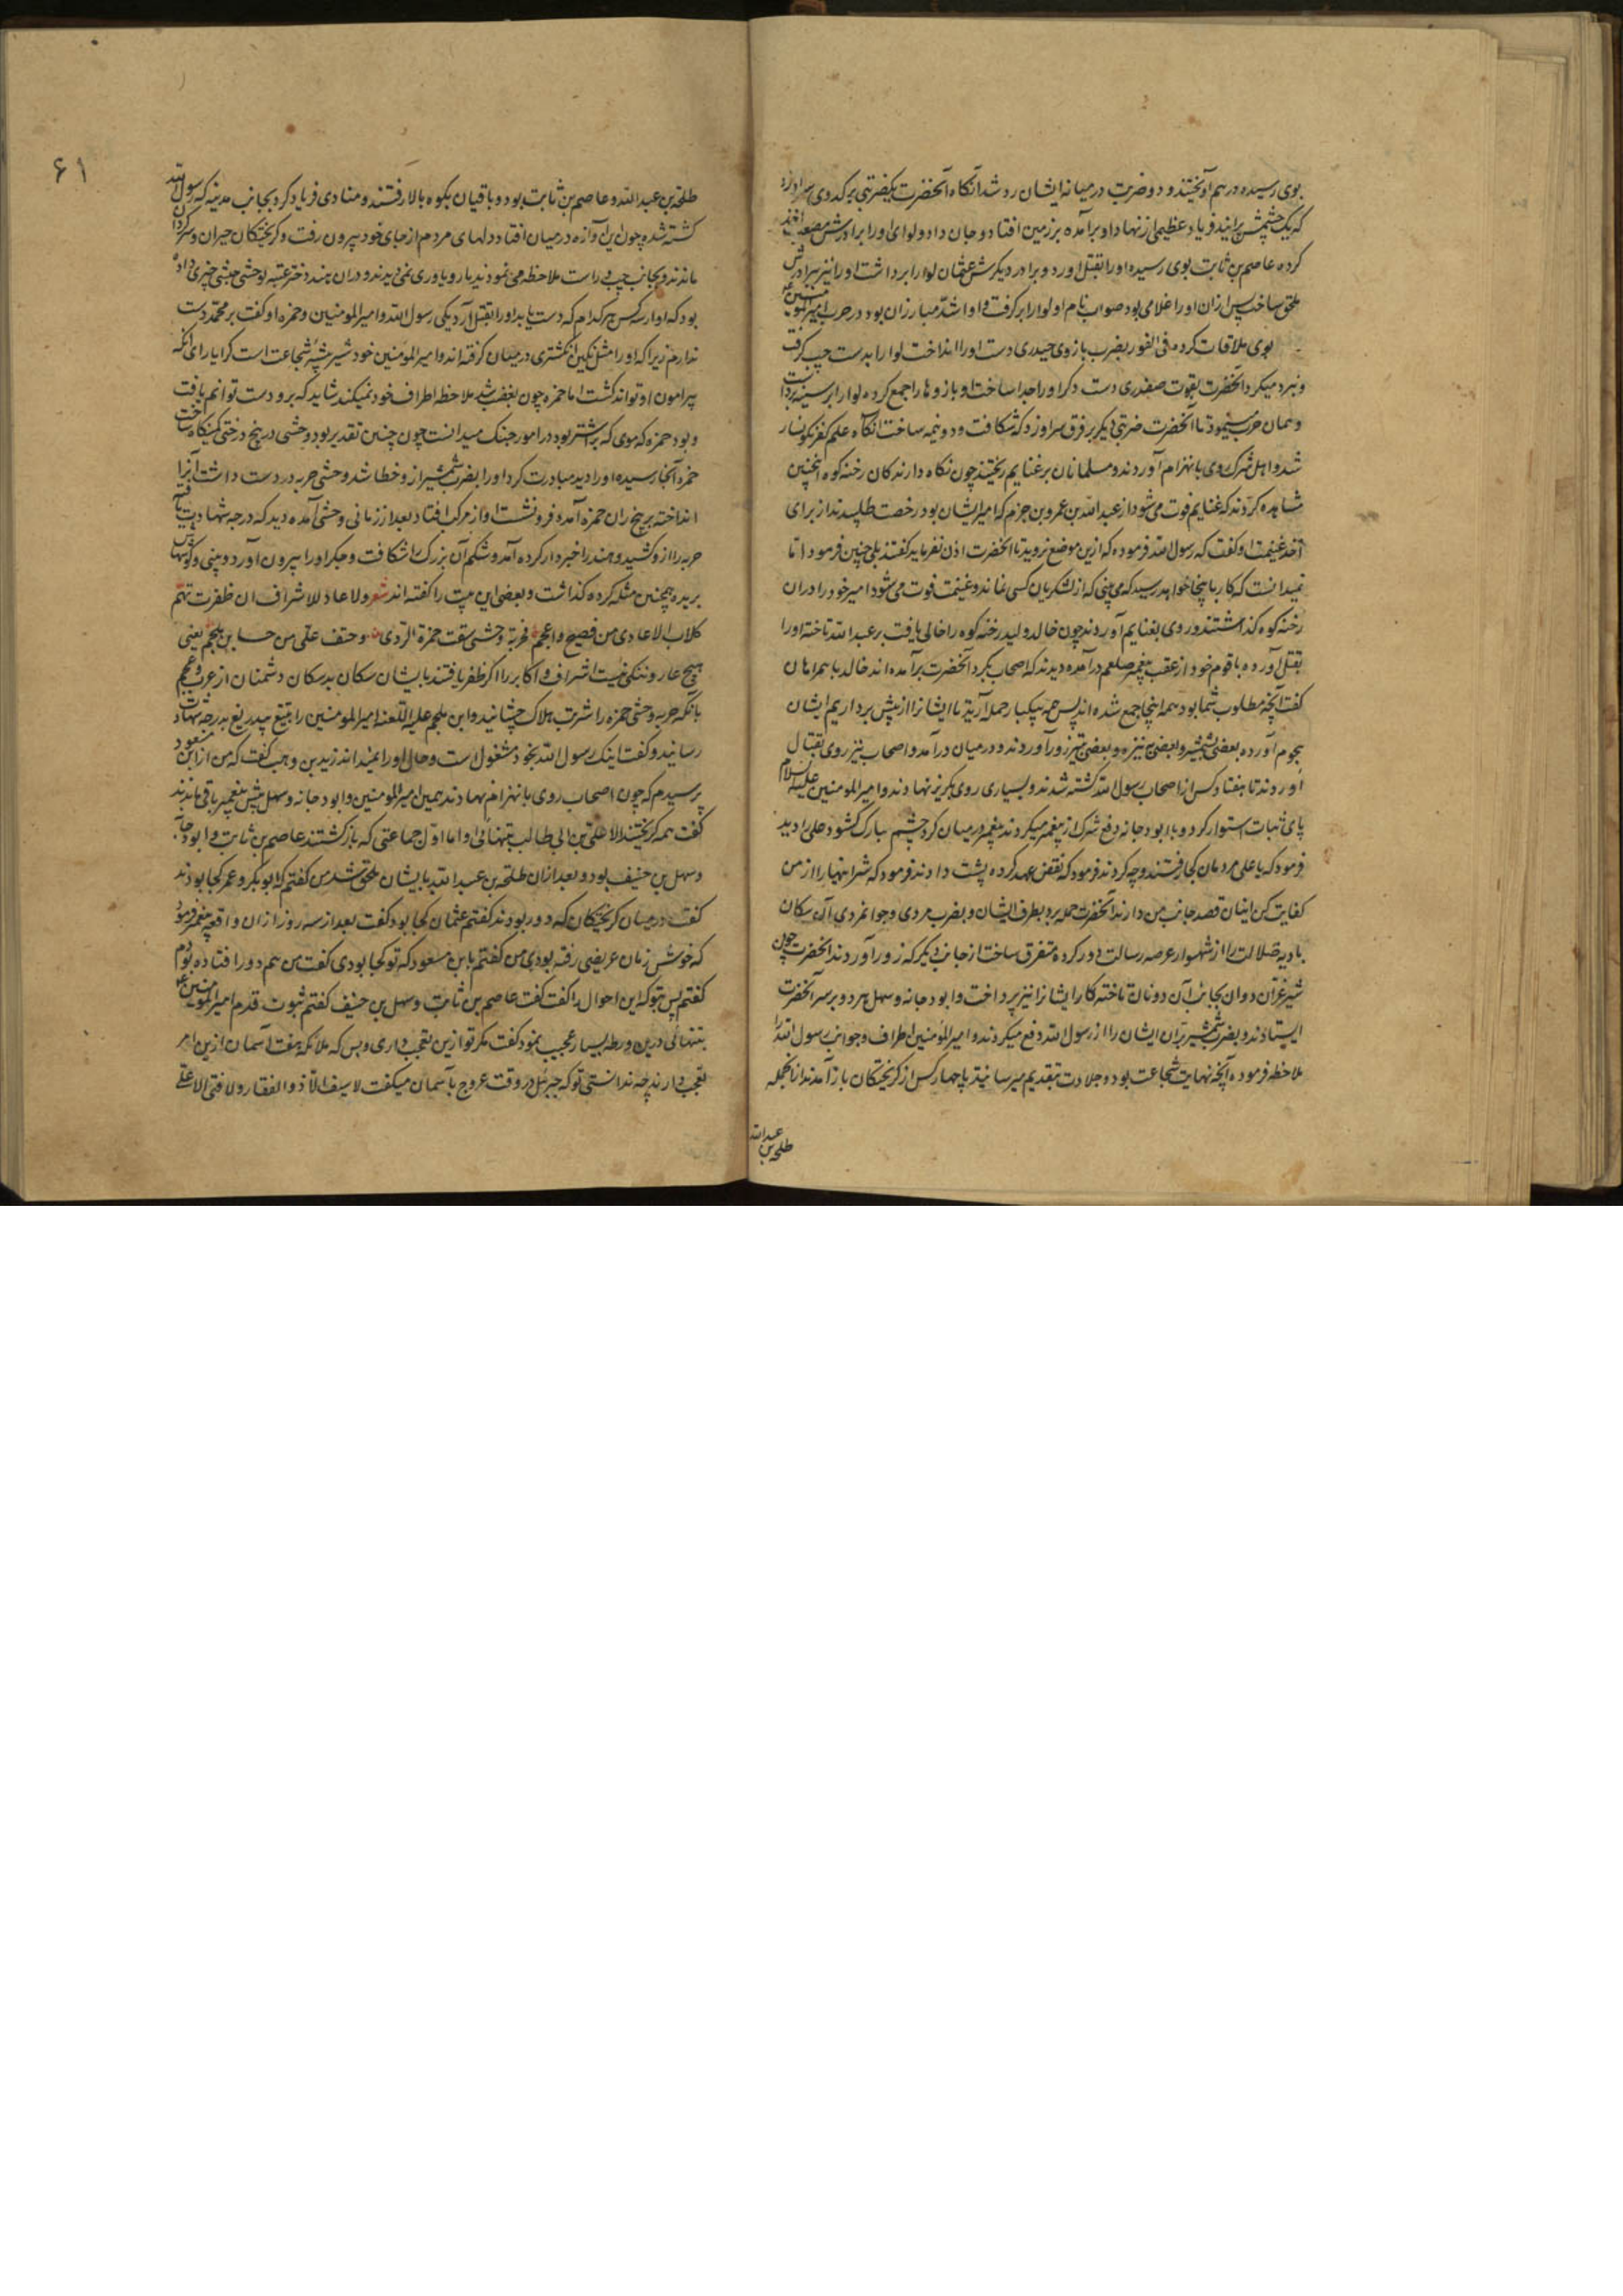 بوی رسیده درهم آویختند و دو ضربت در میانه ایشان رد شد آنگاه آنحضرت یکضربتی بر کدوی سر او زد
که یک چشمش پرانید فریاد عظیمی از نهاد او برآمده بر زمین افتاد و جان داد و لوای او را برادرش مصعب اخذ
کرده عاصم بن ثابت بوی رسیده او را بقتل آورد و برادر دیگرش عثمان لوا را برداشت او را نیز ببرادرش
ملحق ساخت پس ازان او را غلامی بود صواب نام او لوا را برگرفت و او اشد مبارزان بود در حرب امیر المومنین
بوی ملاقات کرده فی الفور بضرب بازوی حیدری دست او را انداخت لوا را بدست چپ گرفت
و نبرد میکرد آنحضرت بقوت صفدری دست دگر او را جدا ساخت او بازوها را جمع کرده لوا را بر سینه برداشت
و همان حرب مینمود تا آنحضرت ضربتی دیگر بر فرق سر او زد که شکافت و دو نیمه ساخت آنگاه علم کفر نگونسار
شد و اهل شرک روی بانهزام آوردند و مسلمانان بر غنایم ریختند چون نگاه دارندگان رخنه کوه اینچنین
مشاهده کردند که غنایم فوت می شود از عبد الله بن عمرو بن حزم که امیر ایشان بود رخصت طلبیدند از برای
اخذ غنیمت او گفت که رسول الله فرموده که ازین موضع نروید تا آنحضرت اذن نفرماید گفتند بلی چنین فرمود اما
نمیدانست که کار ما باینجا خواهد رسید که می بینی که از لشکریان کسی نماند و غنیمت فوت می شود امیر خود را دران
رخنه کوه گذاشتند و روی بغنایم آوردند چون خالد ولید رخنه کوه را خالی یافت بر عبد الله تاخته او را
بقتل آورده با قوم خود از عقب پیغمبر صلعم درآمده دیدند که اصحاب بگرد آنحضرت برآمده اند خالد با همراهان
گفت آنچه مطلوب شما بود همه اینجا جمع شده اند پس همه بیکبار حمله آرید تا ایشانرا از پیش برداریم ایشان
هجوم آورده بعضی بشمشیر و بعضی به نیزه و بعضی بتیر زور آوردند و در میان درآمد و اصحاب نیز روی بقتال
آوردند تا هفتاد کس از اصحاب رسول الله کشته شدند و بسیاری روی بگریز نهادند و امیر المومنین علیه السلام
پای ثبات استوار کرد و با ابو دجانه دفع شرک از پیغمبر میکردند پیغمبر در میان کرد چشم مبارک گشود علی را دید
فرمود که یا علی مردمان کجا رفتند و چه کردند فرمود که نقض عهد کرده پشت دادند فرمود که شر اینها را از من
کفایت کن اینان قصد جانب من دارند آنحضرت حمله برد بطرف ایشان و بضرب مردی و جوانمردی آن سگان
بادیه ضلالت را از شهسوار عرصه رسالت دور کرده متفرق ساخت از جانب دیگر که زور آوردند آنحضرت چون
شیر غران دوان بجانب آن دونان تاخته کار ایشانرا نیز پرداخت و ابو دجانه و سهل هر دو بر سر آنحضرت
ایستادند و بضرب شمشیر بران ایشان را از رسول الله دفع میکردند و امیر المومنین اطراف و جوانب رسول الله را
ملاحظه فرموده آنچه نهایت شجاعت بود و جلادت بتقدیم میرسانید تا چهار کس از گریختگان باز آمدند ازانجمله
طلحه بن عبد الله
۶۱
طلحه بن عبد الله و عاصم بن ثابت بود و باقیان بکوه بالا رفتند و منادی فریاد کرد بجانب مدینه که رسول الله
کشته شده چون این آوازه در میان افتاد دلهای مردم از جای خود بیرون رفت و گریختگان حیران و سرگردان
ماندند و بجانب چپ و راست ملاحظه می نمودند یار و یاوری نمی دیدند و دران هند دختر عتبه بوحشی حبشی چیزی داده
بود که او از سه کس هر کدام که دست یابد او را بقتل آرد یکی رسول الله و امیر المومنین و حمزه او گفت بر محمد دست
ندارم زیرا که او را مثل نگین انگشتری در میان گرفته اند و امیر المومنین خود شیر بیشه شجاعت است کرا یارای آنکه
پیرامون او تواند گشت اما حمزه چون بغضب شد ملاحظه اطراف خود نمیکند شاید که برو دست توانم یافت
و بود حمزه که موی که بر اشتر بود در امور جنگ میدانست چون چنین تقدیر بود وحشی در بیخ درختی کمینگاه ساخت
حمزه آنجا رسیده او را دید مبادرت کرد او را بضرب شمشیر ازو خطا شد وحشی حربه در دست داشت آنرا
انداخته بر بیخ ران حمزه آمده فرو نشست او از مرکب افتاد بعد از زمانی وحشی آمده دید که درجه شهادت یافته
حربه را ازو کشید و هند را خبردار کرده آمد و شکم آن بزرگ را شکافت و جگر او را بیرون آورد و بینی و گوشهاش
بریده همچنین مثله کرده گذاشت و بعضی این بیت را گفته اند شعر ولا عار للاشراف ان ظفرت بهم
کلاب الاعادی من فصیح و اعجم فحربة وحشی سقت حمزة الردی و حتف علی من حسام ابن ملجم یعنی
هیچ عار و ننگی نیست اشراف و اکابر را اگر ظفر یافتند بایشان سگان بدسگان دشمنان از عرب و عجم
بانکه حربه وحشی حمزه را شربت هلاک چشانید و ابن ملجم علیه اللعنه امیر المومنین را بتیغ بیدریغ بدرجه شهادت
رسانید و گفت اینک رسول الله بخود مشغول است و حال او را نمیداند زید بن وهب گفت که من از ابن مسعود
پرسیدم که چون اصحاب روی بانهزام نهادند همین امیر المومنین و ابو دجانه و سهل پیش پیغمبر باقی ماندند
گفت همه گریختند الا علی بن ابی طالب بتنهائی و اما اول جماعتی که بازگشتند عاصم بن ثابت و ابو دجانه
و سهل بن حنیف بود و بعد ازان طلحه بن عبد الله بایشان ملحق شد من گفتم که ابو بکر و عمر کجا بودند
گفت در میان گریختگان که دور بودند گفتم عثمان کجا بود گفت بعد از سه روز ازان واقعه پیغمبر فرمود
که خوش زمان عریضی رفته بودی من گفتم بابن مسعود که تو کجا بودی گفت من هم دور افتاده بودم
گفتم پس بتو که این احوال را گفت گفت عاصم بن ثابت و سهل بن حنیف گفتم ثبوت قدم امیر المومنین
بتنهائی درین ورطه بسیار عجیب بنمود گفت مگر تو ازین تعجب داری و بس که ملائکه هفت آسمان ازین امر
تعجب دارند چه ندانستی تو که جبرئیل در وقت عروج بآسمان میگفت لا سیف الا ذو الفقار ولا فتی الا علی